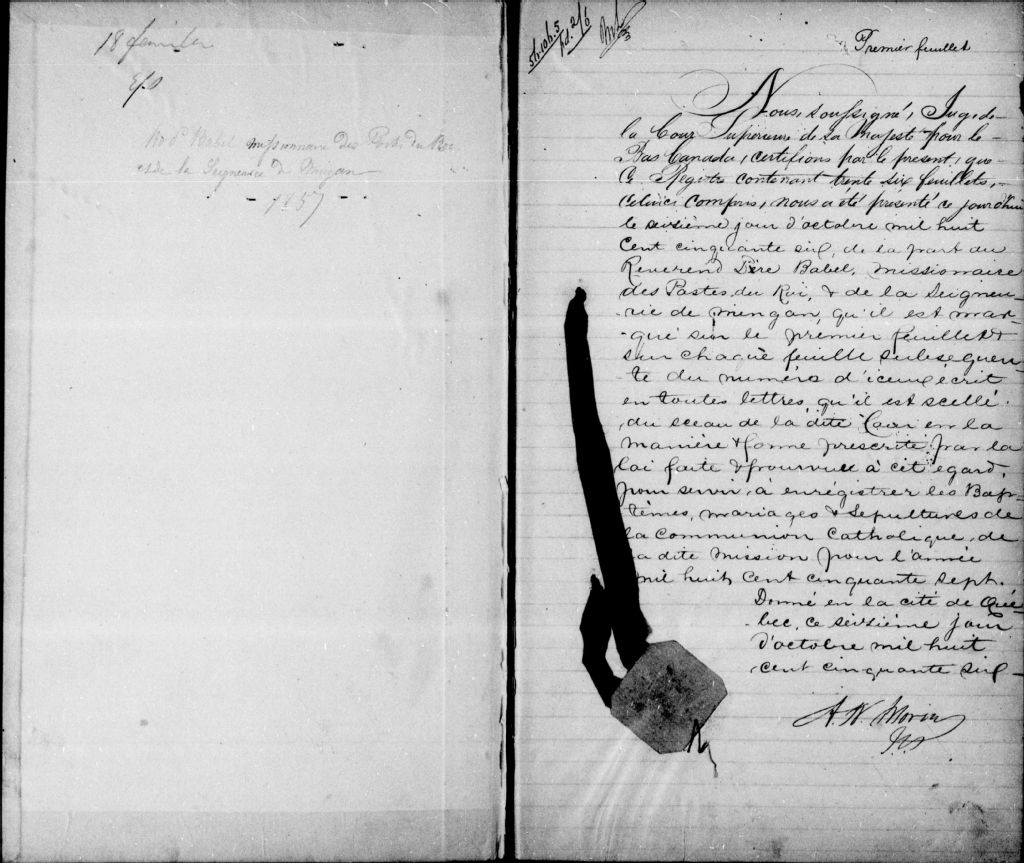 18 février
Rd P Babel missionnaire des Postes du Roi
et de la Seigneurie de Mingan
- 1857 -
Premier feuillet
Nous, soussigné, Juge de
la Cour Supérieure de Sa Majesté pour le
Bas Canada, certifions par le présent, que
ce Registre contenant trente six feuillets,
celui ci compris, nous a été présenté ce jourd'hui
le seizième jour d'octobre mil huit
cent cinquante six, de la part du
Reverend Père Babel, missionnaire
des Postes du Roi, & de la Seigneu-
-rie de Mingan, qu'il est mar-
-qué sur le premier feuillet &
sur chaque feuille subséquen-
te du numéro d'iceux écrit
en toutes lettres, qu'il est scellé
du sceau de la dite Cour en la
manière & forme prescrite par la
loi faite & pourvue à cet égard,
pour servir, à enrégistrer les Bap-
têmes, mariages & Sépultures de
la Communion Catholique, de
la dite Mission pour l'année
mil huit cent cinquante sept.
Donné en la cité de Qué-
-bec, ce seizième jour
d'octobre mil huit
cent cinquante six -
A. N. Morin